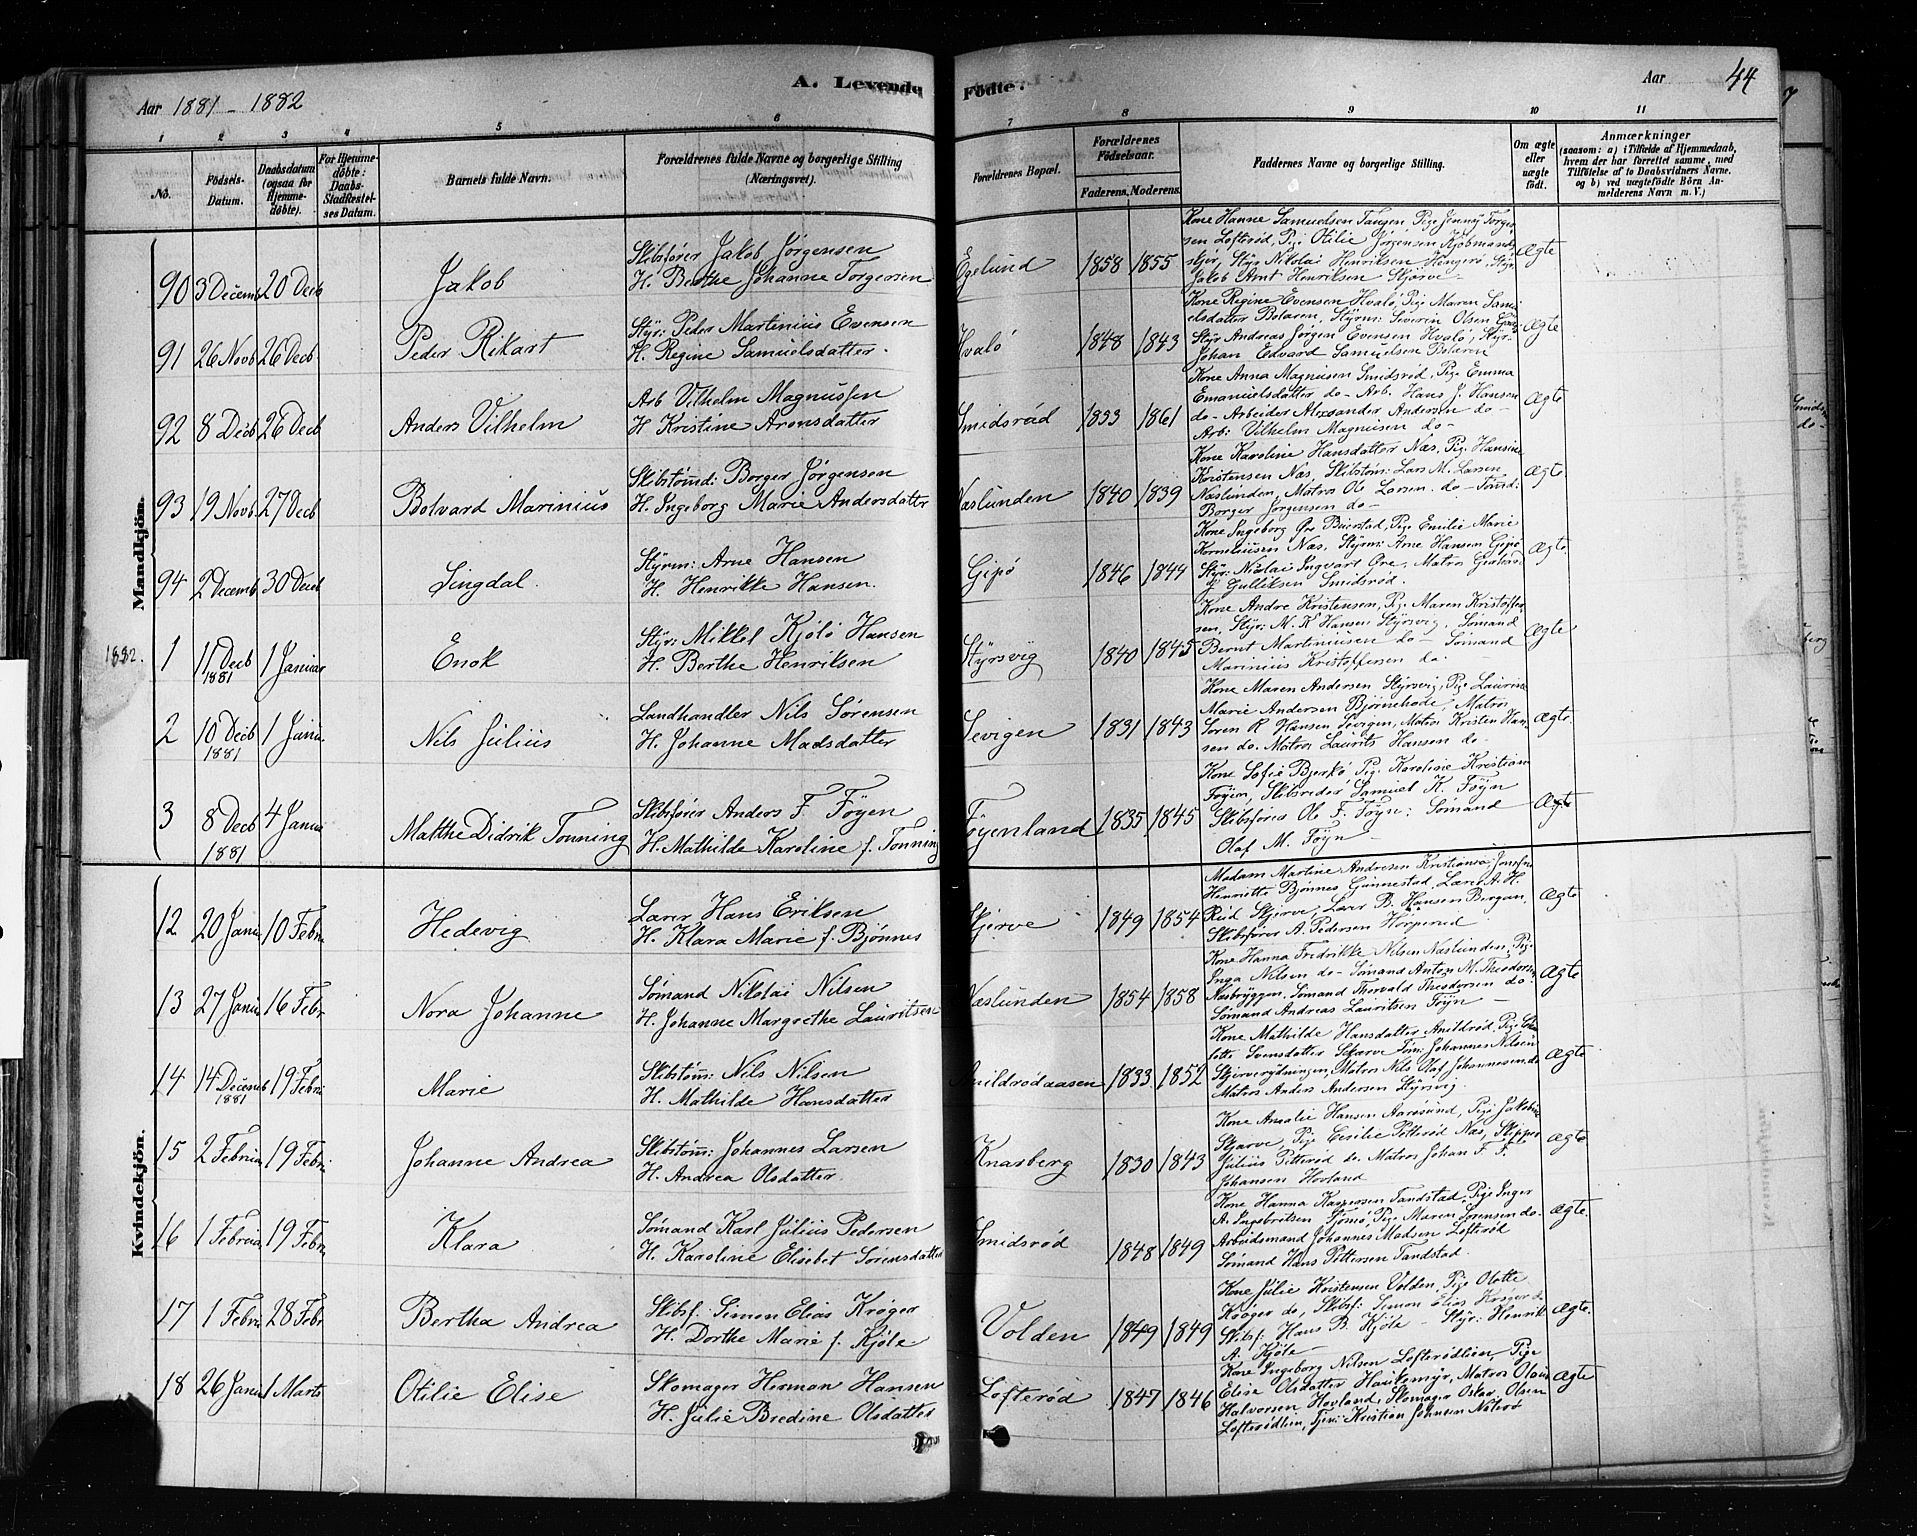 Aar 1881 - 1882
A. Levende
Födte.
Aar
44
1 2 3 4 5 6 7 8 9 10 11
No.
Födsels-Datum.
Daabsdatum (ogsaa for Hjemme-döbte).
For Hjemme-döbte: Daabs-Stadfæstel-ses Datum.
Barnets fulde Navn.
Forældrenes fulde Navne og borgerlige Stilling (Næringsvei).
Forældrenes Bopæl.
Forældrenes Födselsaar.
Faderens. Moderens.
Faddernes Navne og borgerlige Stilling.
Om ægte eller uægte født.
Anmærkninger
(saasom: a) i Tilfælde af Hjemmedaab, hvem der har forrettet samme, med Tilföielse af to Daabsvidners Navne, og b) ved uægtefödte Börn Anmelderens Navn m. V.)
Mandkjön.
90 3 Decemb 20 Decb Jakob
Skibsfører Jakob Jørgensen
H. Berthe Johanne Torgersen
Egelund 1858 1855
Kone Hanne Samuelsen Tangen, Pige Jenny Torger
sen Lofterød, Pige Otilie Jørgensen Kjøbmands
skjær, Styr Nikolai Henriksen Hengerø, Styr
Jakob Arnt Henriksen Skjærve
Ægte
91 26 Novb 26 Decb Peder Rikart
Styr: Peder Martinius Evensen
H. Regine Samuelsdatter
Hvalø 1848 1843
Kone Regine Evensen Hvalø, Pige Maren Samu
elsdatter Bolæren, Styrm: Severin Olsen
Styr Andreas Jørgen Evensen Hvalø, Styr
Johan Edvard Samuelsen Bolæren
Ægte
92 8 Decb 26 Decb Anders Vilhelm
Arb Vilhelm Magnussen
H Kristine Aronsdatter
Smidsrød 1853 1861
Kone Anna Magnusen Smidsrød, Pige Emma
Emanuelsdatter do - Arb. Hans J. Hansen
do - Arbeider Alexsander Andersen do -
Arb: Vilhelm Magnusen do -
Ægte
93 19 Novb. 27 Decb Bolvard Marinius
Skibstømd: Borger Jørgensen
H. Ingeborg Marie Andersdatter
Næslunden 1840 1839
Kone Karoline Hansdatter Næs, Pige Hansine
Kristensen Næs, Skibstøm: Lars M. Larsen
Næslunden, Matros Ole Larsen do - Tømd:
Borger Jørgensen do -
Ægte
94 2 Decemb 30 Decb Singdal.
Styrm: Arne Hansen
H. Henrikke Hansen.
Gipø 1846 1844
Kone Ingeborg Øre Buerstad, Pige Emilie Marie
Korneliusen Næs, Styrm: Arne Hansen Gipø
Styr: Nikolai Ingvart Øre, Matros
Gulliksen Smidsrød.
Ægte.
1882.
1 11 Decb 1881 1 Januar Enok
Styr: Mikkel Kjølø Hansen
H. Berthe Henriksen
Styrsvig 1840 1845
Kone Andre Kristensen, Pige Maren Kristoffer
sen, Styr: M. K Hansen Styrsvig, Sømand
Bernt Martiniusen do - Sømand
Marinius Kristoffersen do.
Ægte
2 10 Decb 1881 1 Janu. Nils Julius
Landhandler Nils Sørensen
H. Johanne Madsdatter
Sevigen 1831 1843
Kone Maren Andersen Styrsvig, Pige Laurine
Marie Andersen Bjørnehode, Matros
Søren R Hansen Sevigen, Matros Kristen Han
sen do. Matros Laurits Hansen do -
Ægte.
3 8 Decb 1881 4 Janua Matthe Didrik Tonning
Skibsfører Anders F. Føyen
H. Mathilde Karoline f. Tonning
Føyenland 1835 1845
Kone Sofie Bjerkø Pige Karoline Kristian
Føyen, Skibsreder Samuel K. Føyn
Skibsfører Ole F. Føyn: Sømand
Olaf M. Føyn
Ægte
Kvindekjön.
12 20 Janu 10 Febru Hedevig
Lærer Hans Eriksen
H. Klara Marie f. Bjønnes
Skjerve 1849 1854
Madam Martine Andresen Kristiania, Jomfru
Henritte Bjønnes Gunnestad, Lærer A. H.
Rud Skjerve, Lærer B. Hansen Bergan,
Skibsfører A. Pedersen
Ægte
13 27 Janu 16 Febr Nora Johanne
Sømand Nikolai Nilsen
H. Johanne Margrethe Lauritsen
Næslunden 1854 1858
Kone Hanna Fredrikke Nilsen Næslunden, Pige
Inga Nilsen do - Sømand Anton M. Theodorsen
Næsbryggen, Sømand Thorvald Theodorsen do
Sømand Andreas Lauritsen Føyn -
Ægte
14 14 Decemb 1881 19 Febru Marie
Skibstøm: Nils Nilsen
H. Mathilde Hansdatter
1833 1852
Kone Mathilde Hansdatter Anildrød, Pige
Svensdatter Skærve Tøm: Johannes Nilsen
Skjerverydningen, Matros Nils Olaf Johannesen do
Matros Anders Andersen Styrsvig.
Ægte
15 2 Februa 19 Febru Johanne Andrea
Skibstøm: Johannes Larsen
H. Andrea Olsdatter.
Knarberg 1830 1843
Kone Amalie Hansen Aarøsund, Pige Jakobine
Skjærve, Pige Cecilie Petterød Næs, Skipper
Julius Petterød do. Matros Johan F. F.
Johansen Hovland
Ægte
16 1 Februar 19 Febru Klara
Sømand Karl Julius Pedersen
H. Karoline Elisebet Sørensdatter
Smidsrød 1848 1849
Kone Hanna Kaspersen Tandstad, Pige Inger
A. Ingebritsen Tjømø, Pige Maren Sørensen do.
Arbeidsmand Johannes Madsen Lofterød
Sømand Hans Pettersen Tandstad.
Ægte.
17 1 Febru 28 Febr Bertha Andrea
Skibsf: Simon Elias Krøger
H. Dorthe Marie f. Kjøle
Volden 1849 1849
Kone Julie Kristensen Volden, Pige Olotte
Krøger do, Skibsf: Simon Elias Krøger do
Skibsf: Hans B. Kjøle - Styr: Henrik
A. Kjøle -
Ægte.
18 26 Janua 1 Marts Otilie Elise
Skomager Herman Hansen
H. Julie Bredine Olsdatter
Lofterød 1847 1846
Kone Ingeborg Nilsen Lofterødlien, Pige
Elise Olsdatter Haukemyr, Matros Olaus
Halvorsen Hovland, Skomager Oskar Olsen
Lofterødlien, Kristian Johnsen Nøterø
Ægte